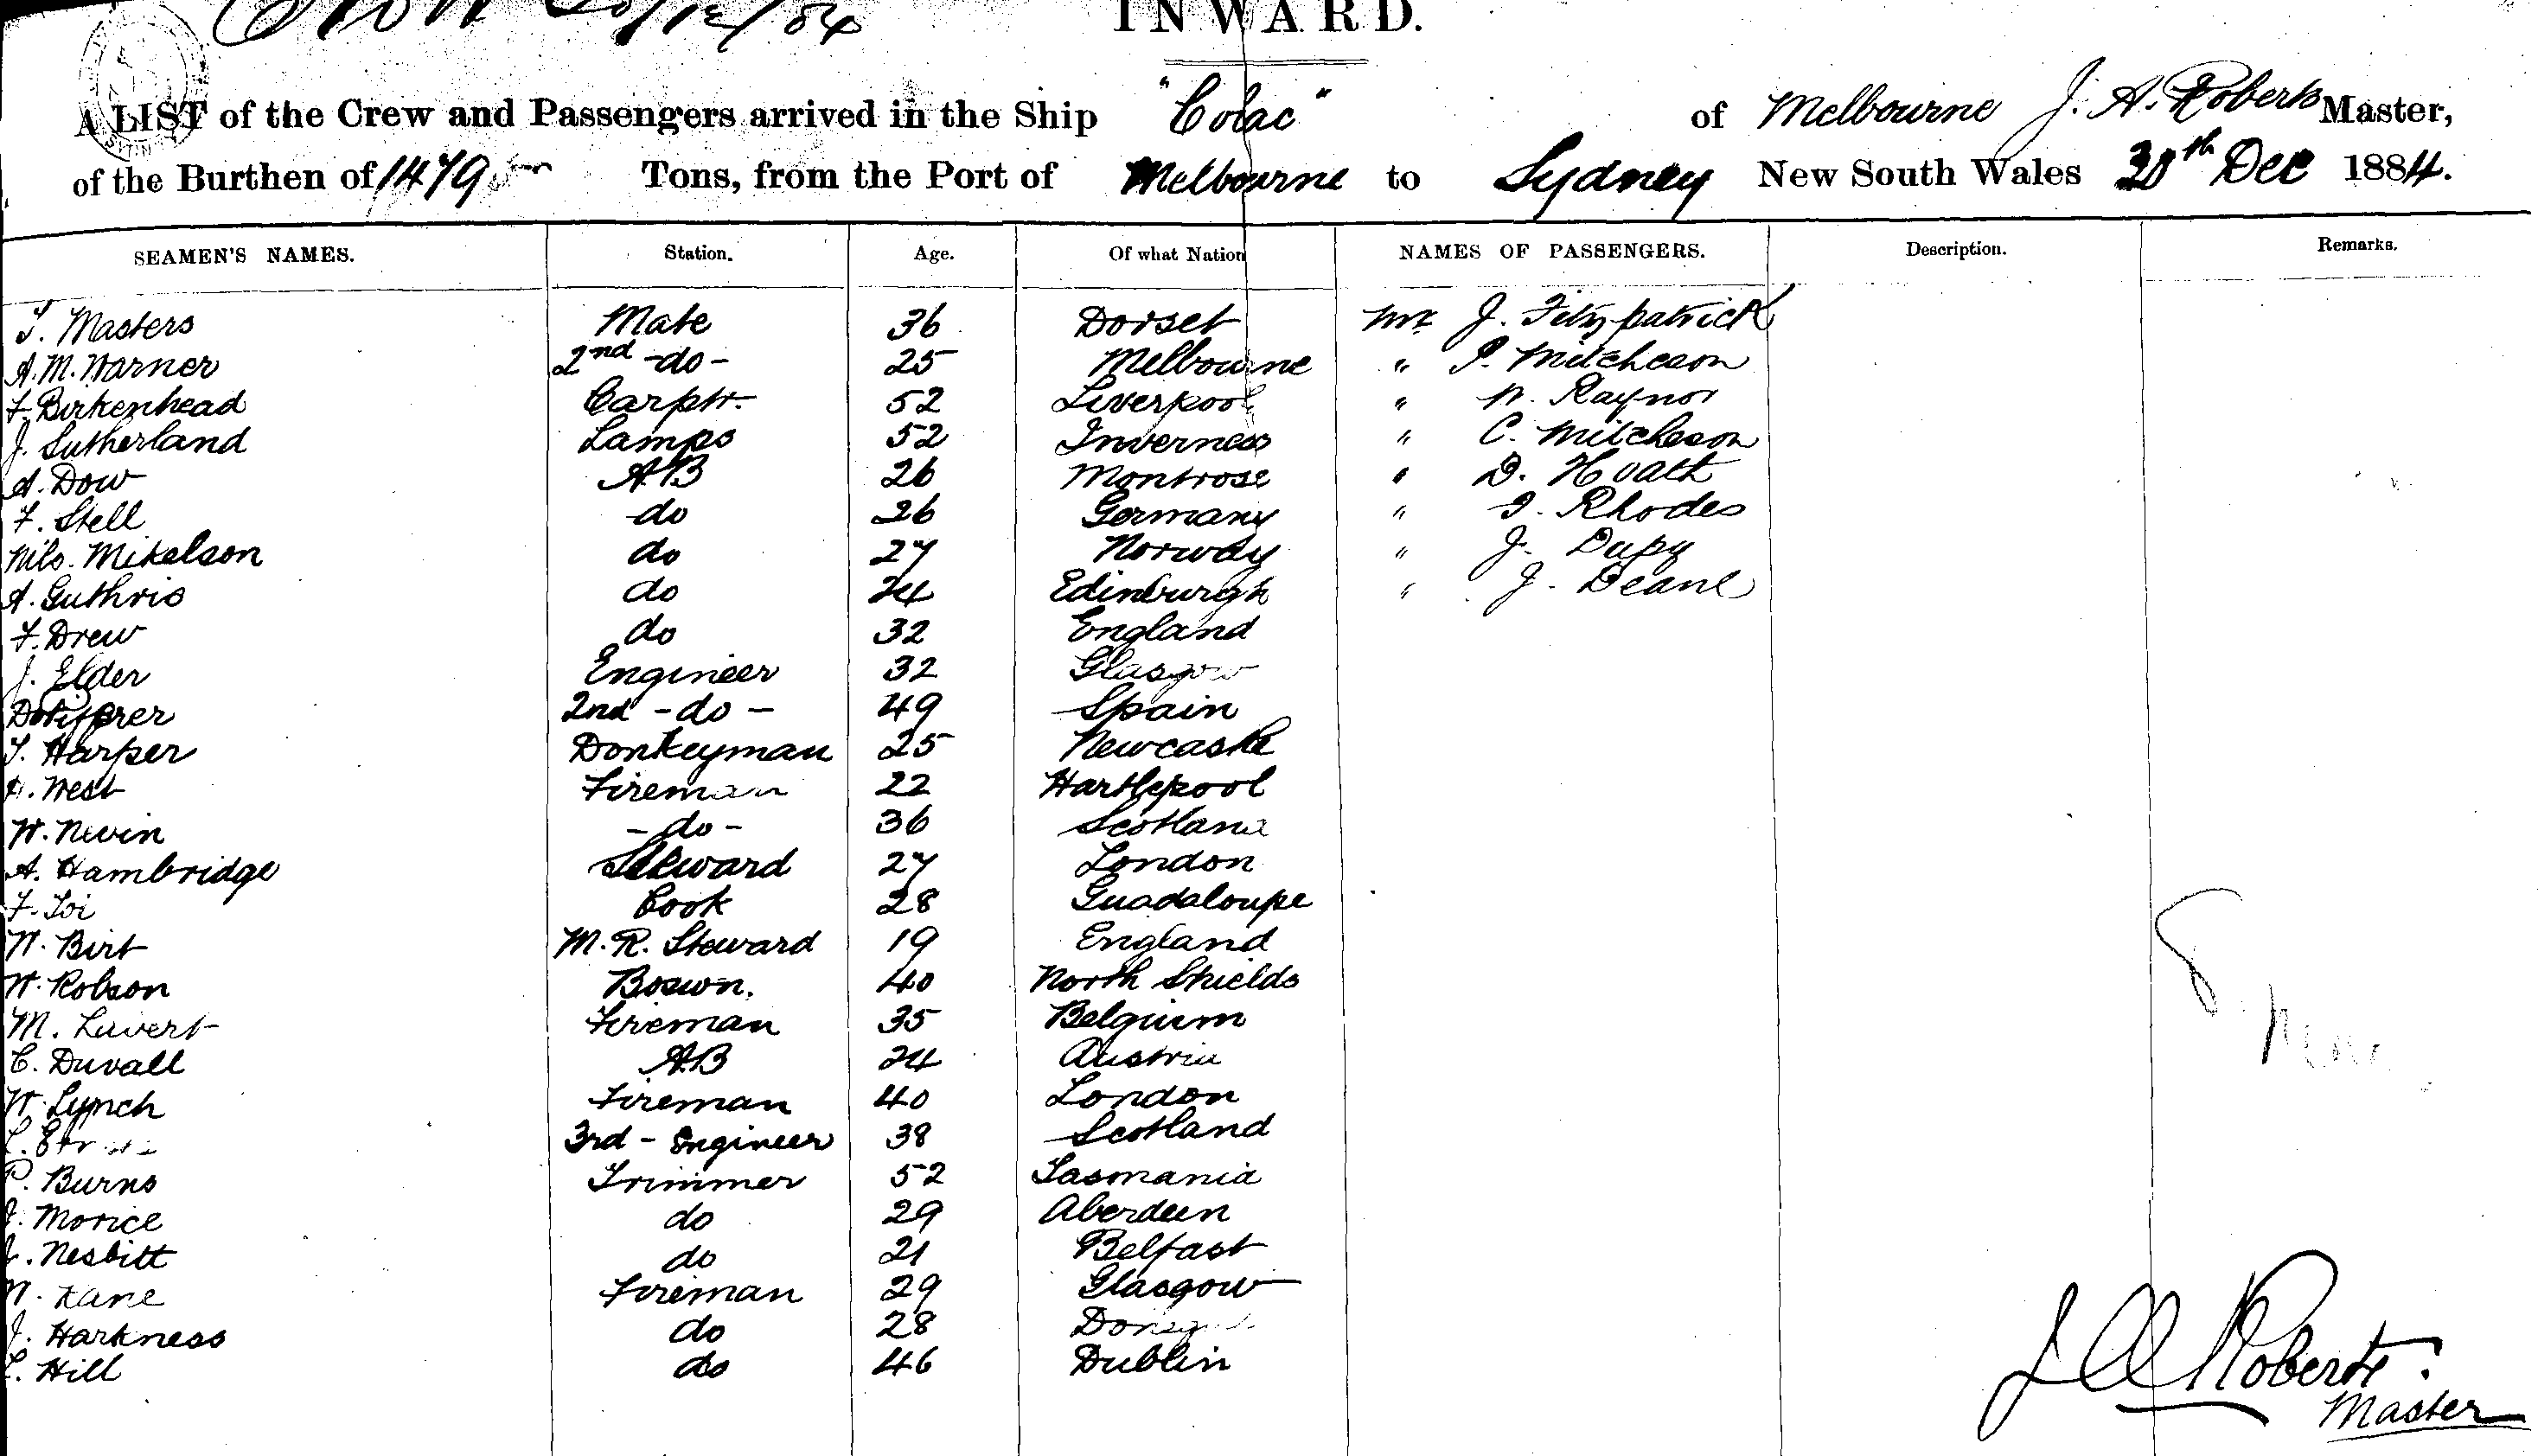 20/12/84
INWARD.
A LIST of the Crew and Passengers arrived in the Ship "Colac" of Melbourne J. A. Roberts Master,
of the Burthen of 1479 Tons, from the Port of Melbourne to Sydney New South Wales 30th Dec 1884.
SEAMEN'S NAMES. Station. Age. Of what Nation NAMES OF PASSENGERS. Description. Remarks.
T. Masters Mate 36 Dorset Mr J. Fitzpatrick
A. M. Warner 2nd -do- 25 Melbourne " P. Mitcheson
F. Birkenhead Carptr. 52 Liverpool " W. Raynor
J. Sutherland Lamps 52 Inverness " C. Mitcheson
A. Dow AB 26 Montrose " D. Hoath
F. Stell do 26 Germany " Rhodes
Nils. Mikelson do 27 Norway " J. Dupy
A. Guthrie do 24 Edinburgh " J. Deane
F. Drew do 32 England
J. Elder Engineer 32 Glasgow
2nd - do - 49 Spain
T. Harper Donkeyman 25 Newcastle
West Fireman 22 Hartlepool
W. Nevin - do - 36 Scotland
A. Hambridge Steward 27 London
F. Loi Cook 28 Guadaloupe
W. Birt M. R. Steward 19 England
W. Robson Boswn. 40 North Shields
M. Luvert Fireman 35 Belguim
C. Duvall AB 24 Austria
W. Lynch Fireman 40 London
3rd - Engineer 38 Scotland
P. Burns Trimmer 52 Tasmania
J. Morice do 29 Aberdeen
Nesbitt do 21 Belfast
W. Kane Fireman 29 Glasgow
J. Harkness do 28
Hill do 46 Dublin
J A Roberts.
Master